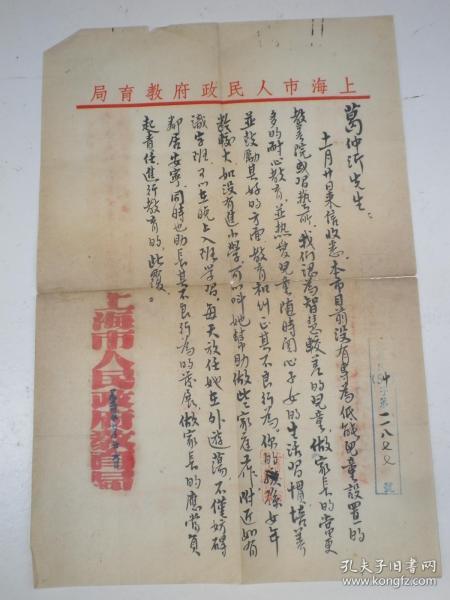 上海市人民政府教育局
葛仲沂先生：
十一月廿日來信收悉。本市目前没有專為低能兒童設置的
教養院或習藝所。我們認為智慧較差的兒童，做家長的當更
多的耐心教育，並热愛兒童随時関心子女的生活習慣培养
並鼓勵其好的方面教育和糾正其不良行為，你的孩女年
齡較大如没有進小學，可以叫她幫助做些家庭工作附近如有
識字班可以在晚上入班學習。每天放任她在外遊蕩，不僅妨碍
鄰居安寧，同時也助長其不良行為的發展，做家長的應當負
起責任進行教育的，此覆。
上海市人民政府教育局
字第二八
號
孔夫子旧书网